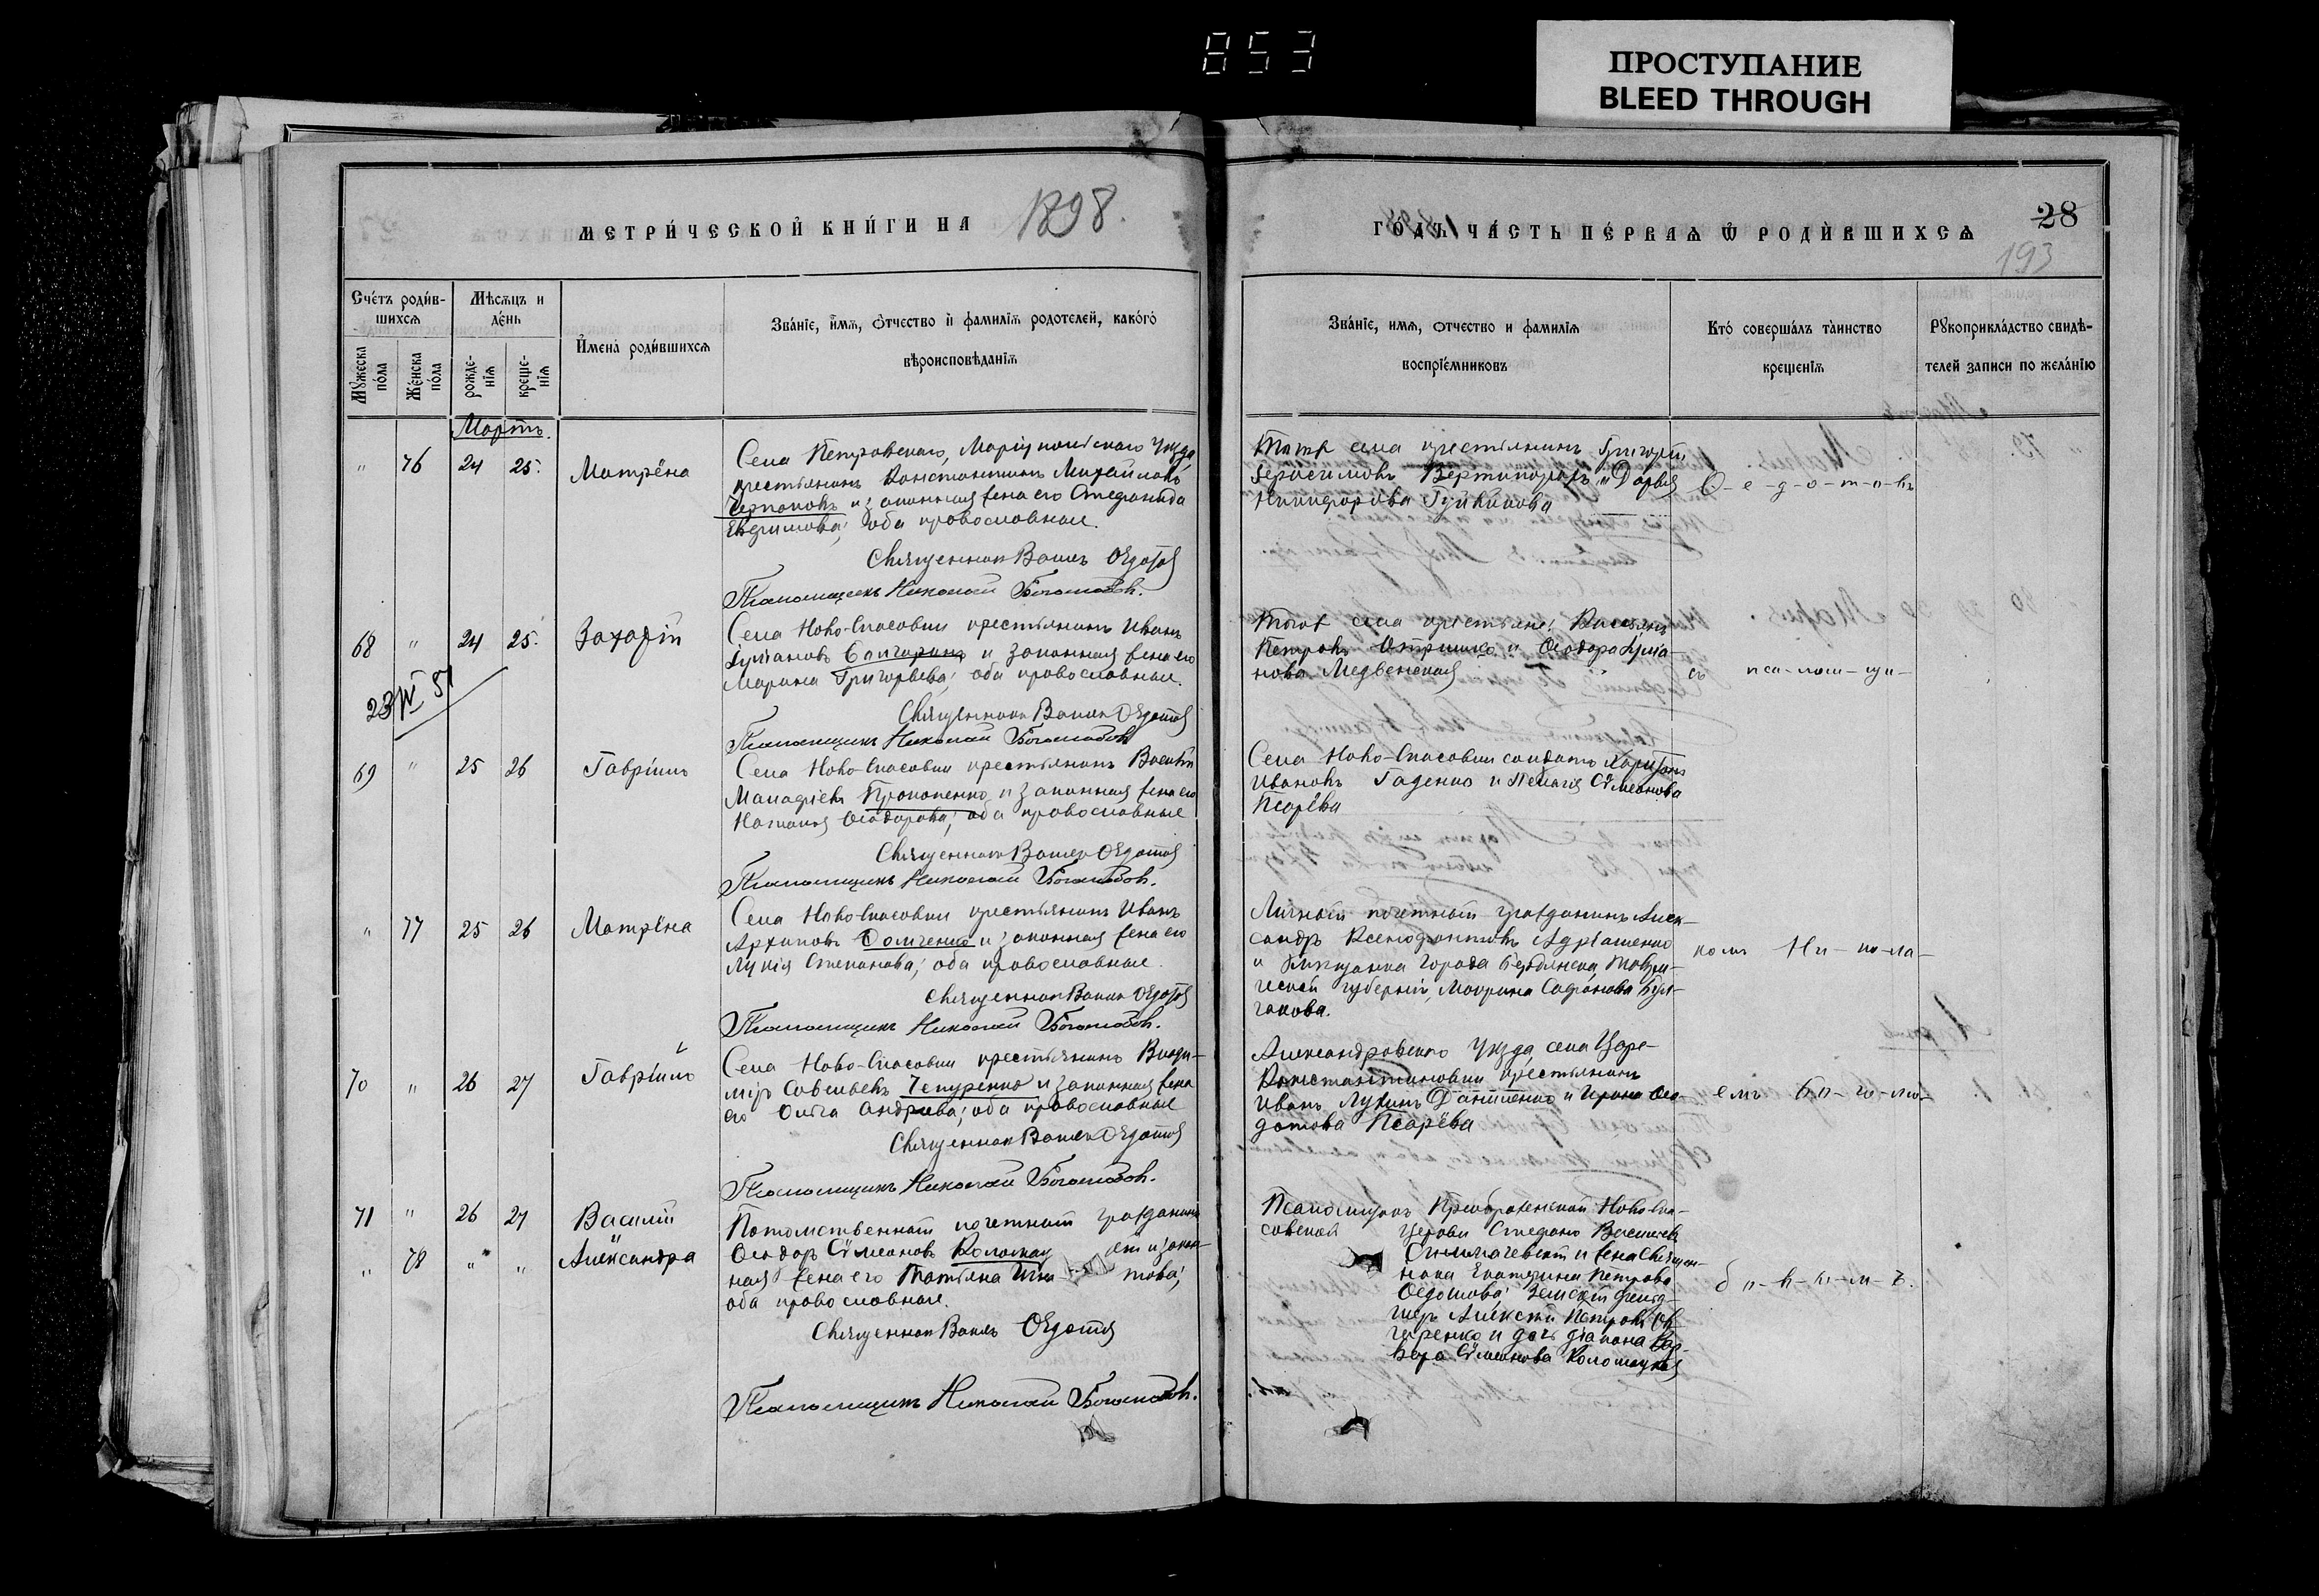 853
ПРОСТУПАНИЕ
BLEED THROUGH
МЕТРИ́ЧЕСКОЙ КНИ́ГИ НА 1898.
ГО́ДЪ ЧА́СТЬ ПЕ́РВАѦ Ѡ҆ РОДИ́ВШИХСѦ
28
193
Сче́тъ роди́в-
шихсѧ
Мѣсѧцъ и
де́нь
Мꙋжеска
по́ла
Же́нска
по́ла
рожде-
нїѧ
креще-
нїѧ
И҆мена̀ роди́вшихсѧ
Зва́нїе, и҆́мѧ, ѻ҆́тчество и҆ фамилїѧ родотелей, како́гѡ
вѣроисповѣданїѧ
Зва́нїе, имѧ, отчество и фамилїѧ
воспрїе́мниковъ
Кто́ соверша́лъ та̀инство
крещенїѧ
Рꙋкоприкла́дство свидѣ-
телей записи по жела́нїю
Мартъ.
" 76 24 25. Матрёна
Села Петровскаго, Маріупольскаго Уѣзда,
крестьянинъ Константинъ Михайловъ
и законная жена его Стефанида
Евфимова; оба православные.
Священникъ Ѳедотов
Псаломщикъ Николай Боголюбовъ.
Того села крестьянинъ Григорій
Герасимовъ Вертипорохъ и Дарья
Никифорова
Ѳ-е-д-о-т-о-въ
68 " 24 25. Захарій
23/IV 51
Села Ново-Спасовки крестьянинъ Иванъ
и законная жена его
Марина Григорьева; оба православные.
Священникъ Ѳедотов
Псаломщикъ Николай Боголюбовъ
Того села крестьяне:
Петровъ и Ѳеодора
нова Медвенская
съ пса-лом-щи-
69 " 25 26 Гавріилъ
Села Ново-Спасовки крестьянинъ Василій
Прокопенко и законная жена его
Наталия Ѳеодорова; оба православные
Священникъ Ѳедотов
Псаломщикъ Николай Боголюбовъ.
Села Ново-Спасовки солдатъ Харитонъ
Ивановъ Гаденко и Пелагія Сѵмеонова
Псарёва
" 77 25 26 Матрёна
Села Ново-Спасовки крестьянинъ Иванъ
Архиповъ Домченко и законная жена его
Лукія Степанова; оба православные.
Священникъ Ѳедотов
Псаломщикъ Николай Боголюбовъ.
Личный почетный гражданинъ Алек-
сандръ Ксенофонтовъ Адріашенко
и мѣщанка города Бердянска, Таври-
ческой губерніи, Софонова Бул-
гакова.
комъ Ни-ко-ла-
70 " 26 27 Гавріилъ
Села Ново-Спасовки крестьянинъ Влади-
міръ Савельевъ Чепуренко и законная жена
его Ольга Андреева; оба православные
Священникъ Ѳедотов
Псаломщикъ Николай Боголюбовъ.
Александровскаго Уѣзда, села Царе-
Константиновки крестьянинъ
Иванъ Лукинъ Даниленко и Ирина Ѳео-
дотова Псарёва
емъ Бо-го-лю-
71 " 26 27 Василій
" 78 " " Александра
Потомственный почетный гражданинъ
Ѳеодоръ Сѵмеоновъ и закон-
ная жена его Татьяна това;
оба православные.
Священникъ Ѳедотов
Псаломщикъ Николай Боголюбовъ.
Псаломщикъ Преображенской Ново-Спа-
совской церкви Стефанъ Васильевъ
и жена Священ-
ника Екатерина Петрова
Ѳедотова; Земскій фельд-
шеръ Алексѣй Петровъ
и дочь діакона Вар-
вара Сѵмеонова Коломацкая
б о-в-ы-м-ъ.